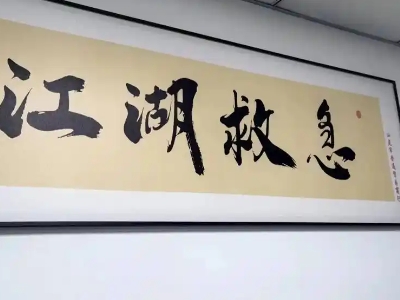 江湖救急